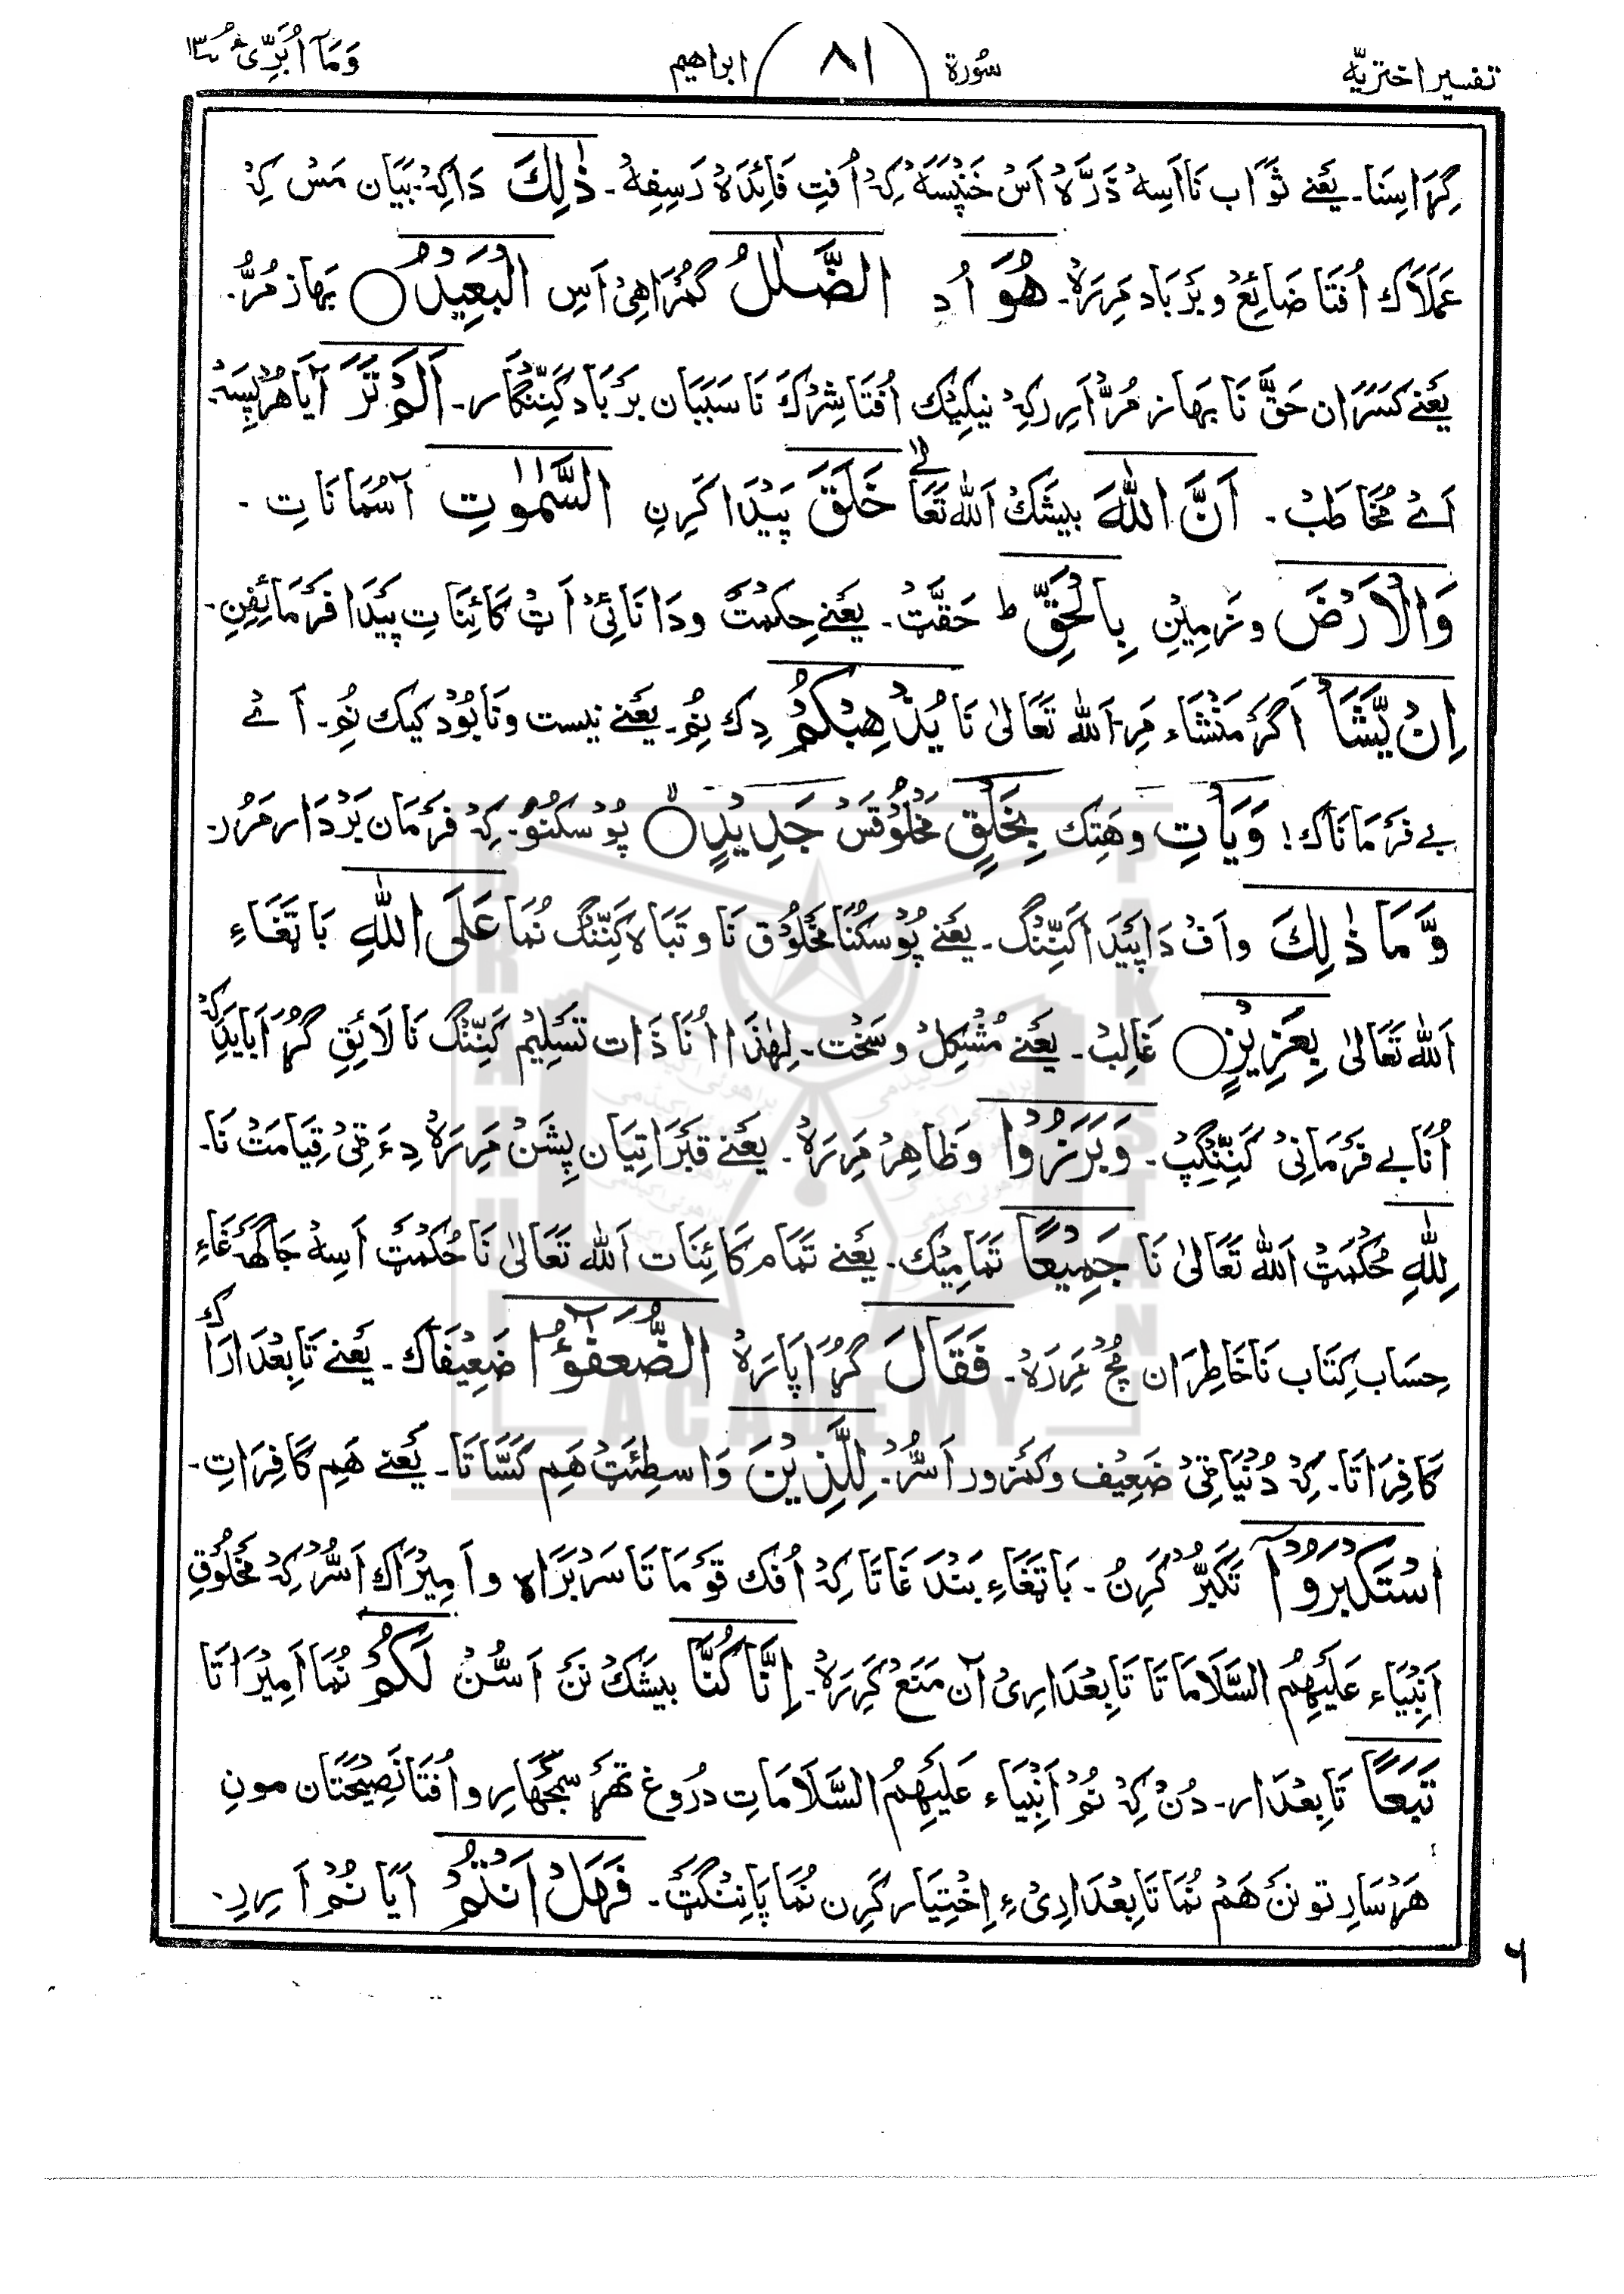 تفسیر اختریّه سُورة ٨١ ابراهیم وَمَآ اُبَرِّیُٔ ١٣
گِہَڑ اسِنَا۔ یَعْنے ثَوَاب نَا اَسِهْ ذَرَّهْ اَسْ خَنْپَسَهْ کِهْ اُفتِ فَائِدَهْ رَسِفِهْ۔ ذٰلِكَ دَاکِهْ بَیَان مَسْ کِهْ
عَمَلَاك اُفْتَا ضَائِعْ و بَرْبَاد مَرِرَهْ۔ هُوَ اُد الضَّلٰلُ گُمْرَاهِیْ اَسِ الْبَعِیْدُ○ بَهاز مُرُّ۔
یَعْنے کَسَرَان حَقَّ نَا بَهاز مُرُّ اَرِر کِهْ نِیْکِیْك اُفْتَا شِرْك نَا سَبَبَان بَرْبَاد کَنِنْگَار۔ اَلَمْ تَرَ آیَا هُرْپِیسَهْ
اَےْ مُخَاطَبْ۔ اَنَّ اللّٰهَ بِیْشَكْ اَللّٰه تَعَالٰے خَلَقَ پَیْدَا کَرِنِ السَّمٰوٰتِ آسْمَانَاتِ۔
وَالْاَرْضَ و زَمِیْنِ بِالْحَقِّ ط حَقَّتْ۔ یَعْنے حِکْمَتْ و دَانَائِیْ اَتْ کَائِنَاتِ پَیْدَا فَرْمَائِفِنِ۔
اِنْ یَّشَاْ اَگَرْ مَنْشَاء مَرِ اَللّٰه تَعَالٰی نَا یُذْهِبْکُمْ دِك نُمِ۔ یَعْنے نِیست و نَابُوْد کیك نُمِ۔ اَےْ
بے فَرْمَانَاك! وَیَاْتِ و هَتِك بِخَلْقٍ مَخْلُوْقَسْ جَدِیْدٍ○ پُوْسْکُنُو۔ کِهْ فَرْمَان بَرْدَار مَرُر۔
وَّمَا ذٰلِكَ و اَفْ دَا پَیْدَا کَنِنْگ۔ یَعْنے پُوْسْکُنَا مَخْلُوْق نَا و تَبَاه کَنِنْگ نُمَا عَلَی اللّٰهِ بَاتَغَاءِ
اَللّٰه تَعَالٰی بِعَزِیْزٍ○ غَالِبْ۔ یَعْنے مُشْکِلْ و سَخْت۔ لِهٰذَا اُنَا ذَات تَسْلِیْم کَنِنْگ نَا لَائِقِ گُڑَا بَایَدْ کِهْ
اُنَا بے فَرْمَانِیْ کَنِنْگِپْ۔ وَبَرَزُوْا وَ ظَاهِرْ مَرِرَهْ۔ یَعْنے قَبْرَاتِیَان پِشَنْ مَرِرَهْ دِءَ ٹِیْ قِیَامَتْ نَا۔
لِلّٰهِ حُکْمَتْ اَللّٰه تَعَالٰی نَا جَمِیْعًا تَمَامِیْك۔ یَعْنے تَمَام کَائِنَات اَللّٰه تَعَالٰی نَا حُکْمَتْ اَسِهْ جَاگَهْ غَاءِ
حِسَاب کِتَاب نَا خَاطِرَان مُچْ مَرِرَهْ۔ فَقَالَ گُڑَا پَارَهْ الضُّعَفٰٓؤُا ضَعِیْفَاك۔ یَعْنے تَابِعْدَارَاك
کَافِرَاتَا۔ کِهْ دُنْیَاٹِیْ ضَعِیْف و کَمْزور اَسُّرْ۔ لِلَّذِیْنَ وَاسْطِئَتْ هَمِ کَسَّاتَا۔ یَعْنے هَمِ کَافِرَاتِ۔
اسْتَکْبَرُوْٓا تَکَبُّرْ کَرِنُ۔ بَاتَغَاءِ بَنْدَغَاتَا کِهْ اُفْك قَوْمَاتَا سَرْبَرَاه و اَمِیْرَاك اَسُّرْ کِهْ مَخْلُوْقِ
اَنْبِیَاء عَلَیْهِمُ السَّلَامَاتَا تَابِعْدَارِیْ آن مَنَعْ کَرِرَهْ۔ اِنَّا کُنَّا بِیشَكْ نَنْ اَسُّنْ لَکُمْ نُمَا اَمِیْرَاتَا
تَبَعًا تَابِعْدَار۔ دُنْ کِهْ نُمْ اَنْبِیَاء عَلَیْهِمُ السَّلَامَاتِ دُرُوغ تَهَرْ سَمْجَهَارِ و اُفْتَا نَصِیْحَتَان مونِ
هَرْسَارِ تو نَنْ هَمْ نُمَا تَابِعْدَارِیْءِ اِخْتِیَار کَرِن نُمَا پَانِنْگَتْ۔ فَهَلْ اَنْتُمْ آیَا نُمْ اَرِرِ۔